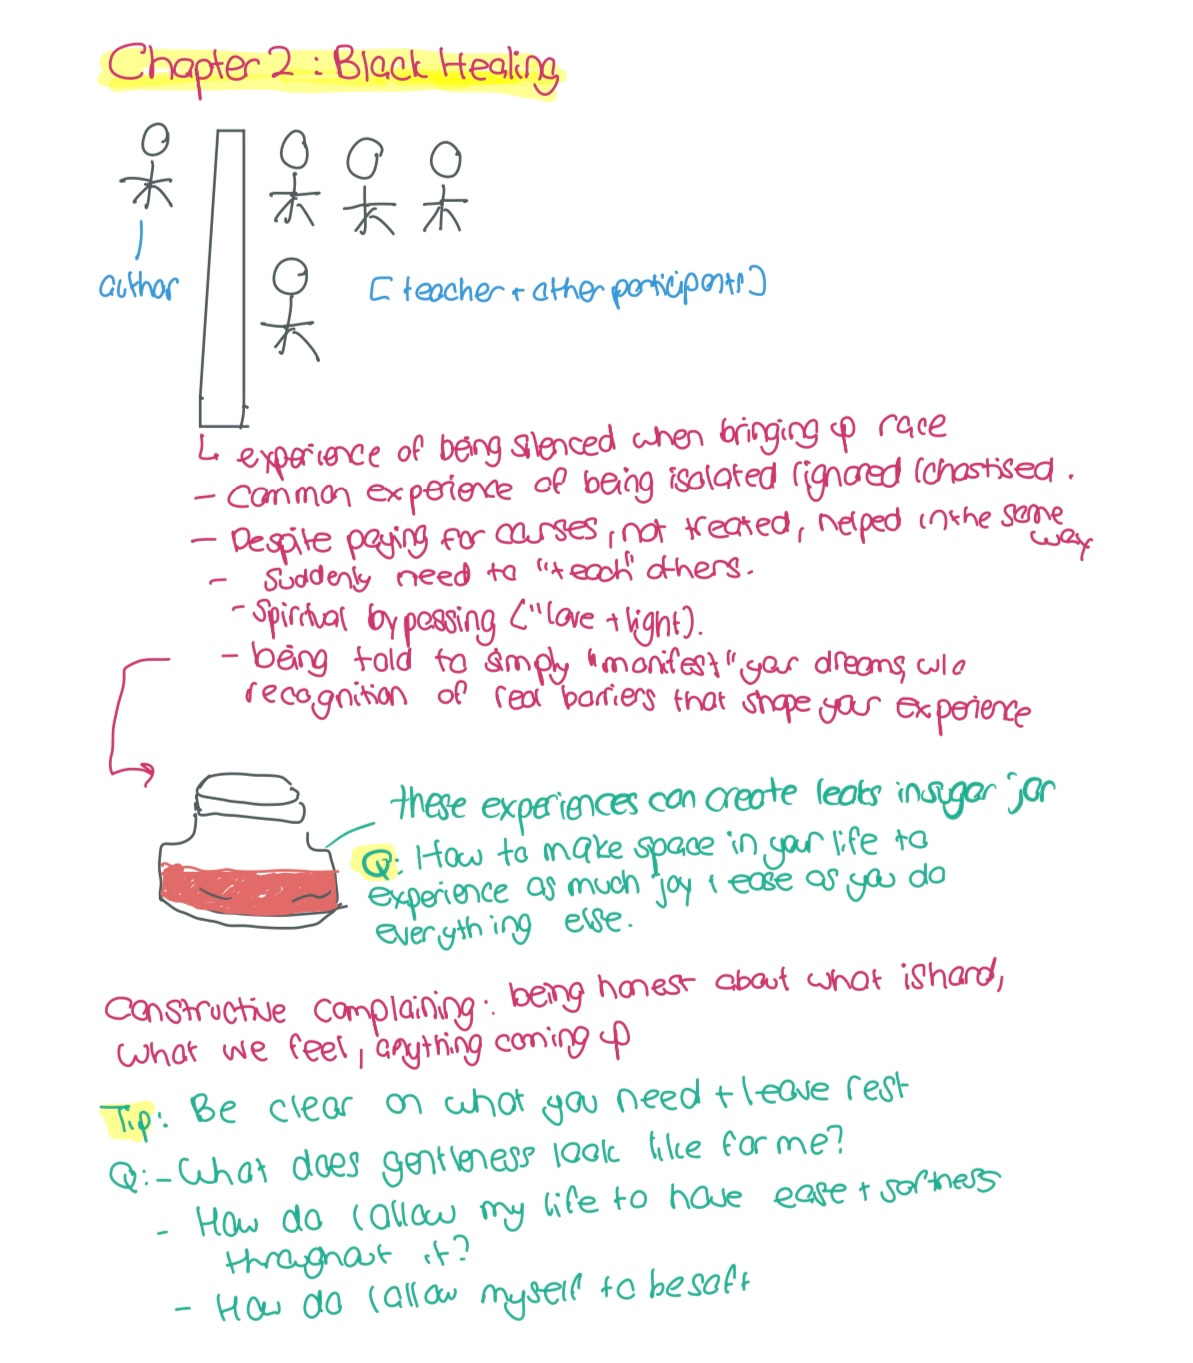 Chapter 2 : Black Healing
author
[ teacher + other participants ]
↳ experience of being silenced when bringing up race
- Common experience of being isolated / ignored / chastised.
- Despite paying for courses, not treated, helped in the same way
- Suddenly need to "teach" others.
- Spiritual by passing ("love + light).
- being told to simply "manifest" your dreams, w/o
recognition of real barriers that shape your experience
these experiences can create leaks in sugar jar
Q: How to make space in your life to
experience as much joy & ease as you do
everything else.
Constructive complaining: being honest about what is hard,
what we feel, anything coming up
Tip: Be clear on what you need + leave rest
Q: - What does gentleness look like for me?
- How do I allow my life to have ease + softness
throughout it?
- How do I allow myself to be soft